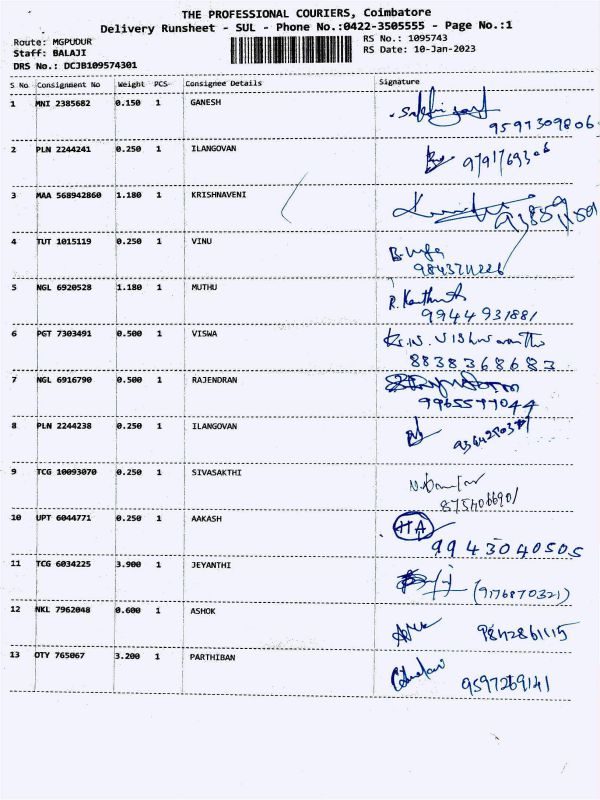 THE PROFESSIONAL COURIERS, Coimbatore
Delivery Runsheet - SUL - Phone No.:0422-3505555 - Page No.:1
Route: MGPUDUR
RS No.: 1095743
Staff: BALAJI
RS Date: 10-Jan-2023
DRS No.: DCJB109574301
S No Consignment No Weight PCS Consignee Details Signature
1 MNI 2385682 0.150 1 GANESH
9597309806
2 PLN 2244241 0.250 1 ILANGOVAN
3 MAA 568942860 1.180 1 KRISHNAVENI
4 TUT 1015119 0.250 1 VINU
9843711226
5 NGL 6920528 1.180 1 MUTHU
9944931881
6 PGT 7303491 0.500 1 VISWA
8838368683
7 NGL 6916790 0.500 1 RAJENDRAN
9965577044
8 PLN 2244238 0.250 1 ILANGOVAN
9 TCG 10093070 0.250 1 SIVASAKTHI
8754066901
10 UPT 6044771 0.250 1 AAKASH HA
9943040505
11 TCG 6034225 3.900 1 JEYANTHI
(9176870321)
12 NKL 7962048 0.600 1 ASHOK 9842861115
13 OTY 765067 3.200 1 PARTHIBAN
9597269141